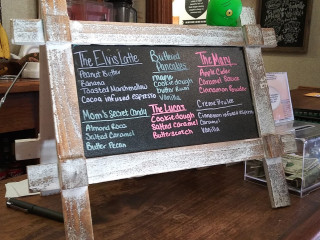 The Elvis Latte
Peanut Butter
Banana
Toasted Marshmallow
Cocoa infused espresso
Mom's Secret Candy
Almond Roca
Salted Caramel
Butter Pecan
Buttered
Pancakes
maple
Cookie dough
butter Rum
Vanilla
The Lucas
Cookie dough
Salted Caramel
Butterscotch
The Mary
Apple Cider
Caramel Sauce
Cinnamon Powder
Creme Brulee
Cinnamon infused espresso
Caramel
Vanilla